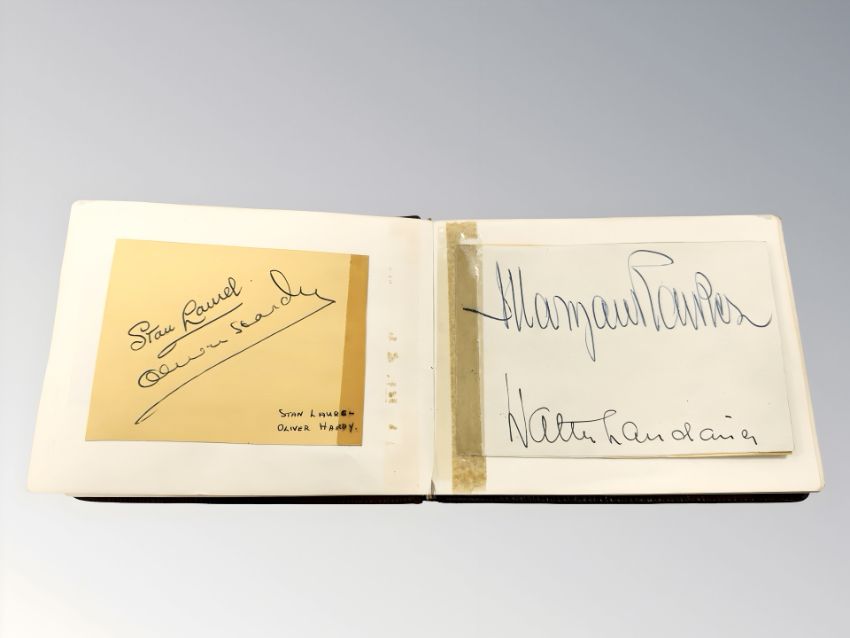 Stan Laurel
Oliver Hardy
STAN LAUREL
OLIVER HARDY.
Walter Landauer